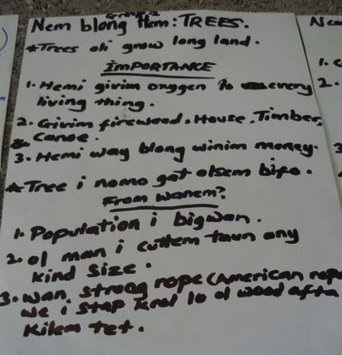 Group 2
Nem blong Hem: TREES.
*Trees oli grow long land.
IMPORTANCE
1. Hemi givim oxygen lo every
living thing.
2. Givim firewood, House, Timber,
& Canoe.
3. Hemi way blong winim money.
*Tree i nomo gat olsem bifo.
From wanem?
1. Population i bigwan.
2. ol man i cuttem taun any
kind size.
3. wan strong rope (American rope
we i stap krol lo ol wood afta
kilem tet.